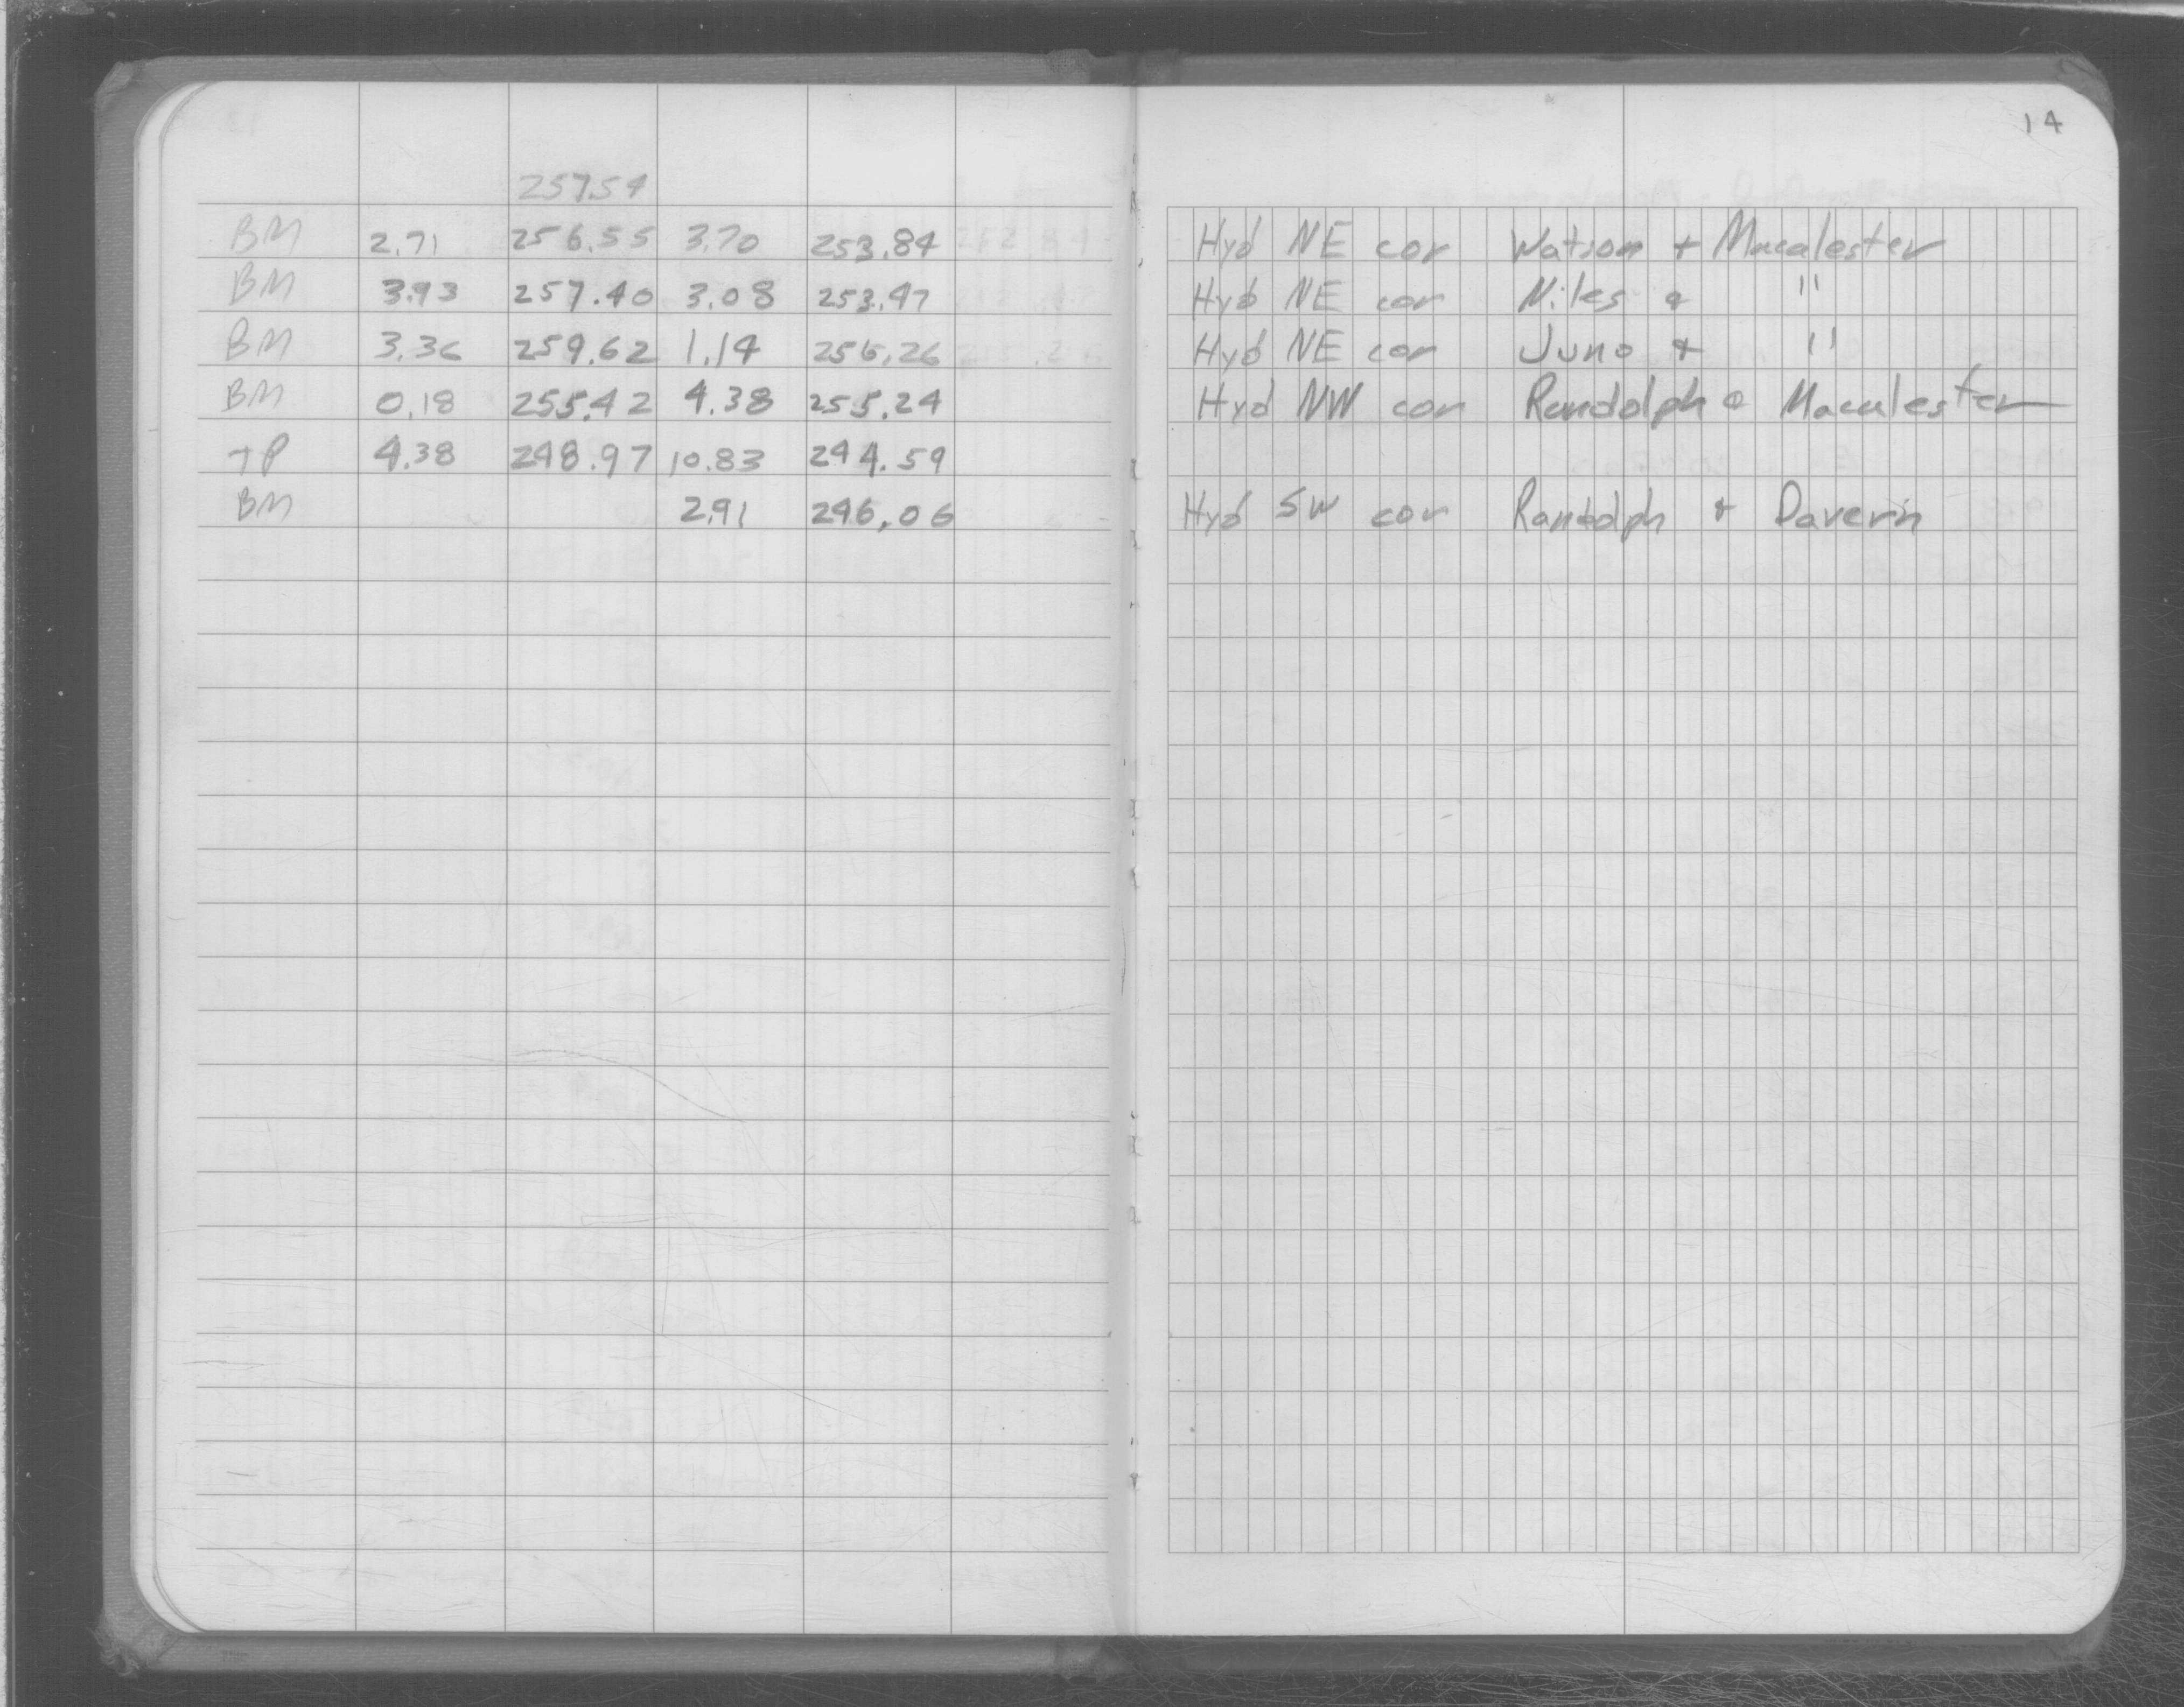 14
257.54
BM 2.71 256.55 3.70 253.84 Hyd NE cor Watson + Macalester
BM 3.93 257.40 3.08 253.47 Hyd NE cor Niles & "
BM 3.36 259.62 1.14 256.26 Hyd NE cor Juno & "
BM 0.18 255.42 4.38 255.24 Hyd NW cor Randolph & Macalester
TP 4.38 248.97 10.83 244.59
BM 2.91 246.06 Hyd SW cor Randolph & Davern